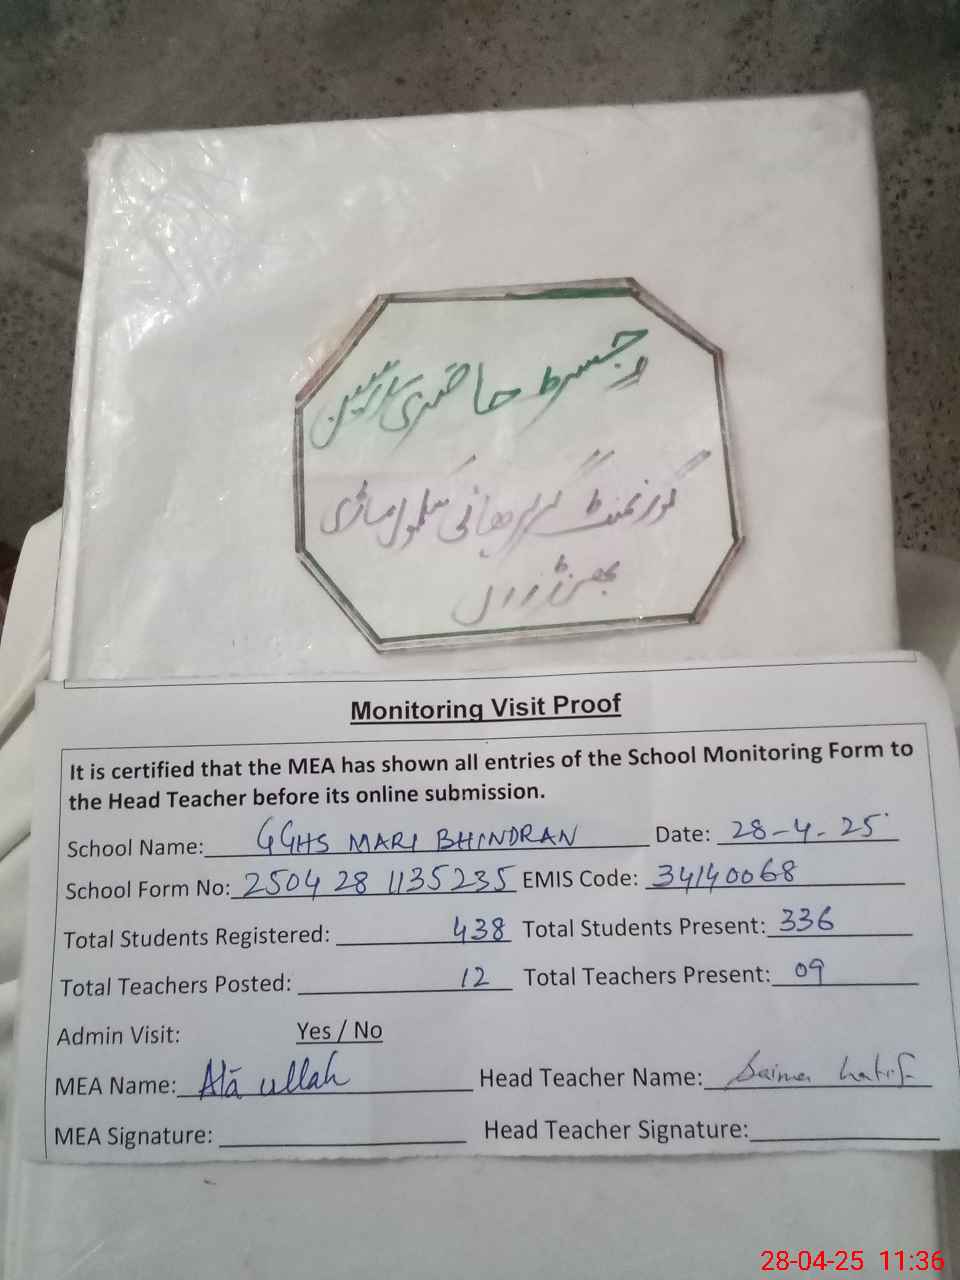 رجسٹر حاضری
گورنمنٹ گرلز ہائی سکول ماڑی
بھنڈراں
Monitoring Visit Proof
It is certified that the MEA has shown all entries of the School Monitoring Form to
the Head Teacher before its online submission.
School Name: GGHS MARI BHINDRAN Date: 28-4-25
School Form No: 2504 28 1135235 EMIS Code: 34140068
Total Students Registered: 438 Total Students Present: 336
Total Teachers Posted: 12 Total Teachers Present: 09
Admin Visit: Yes / No
MEA Name: Atā ullah Head Teacher Name: Saima
MEA Signature: Head Teacher Signature:
28-04-25 11:36